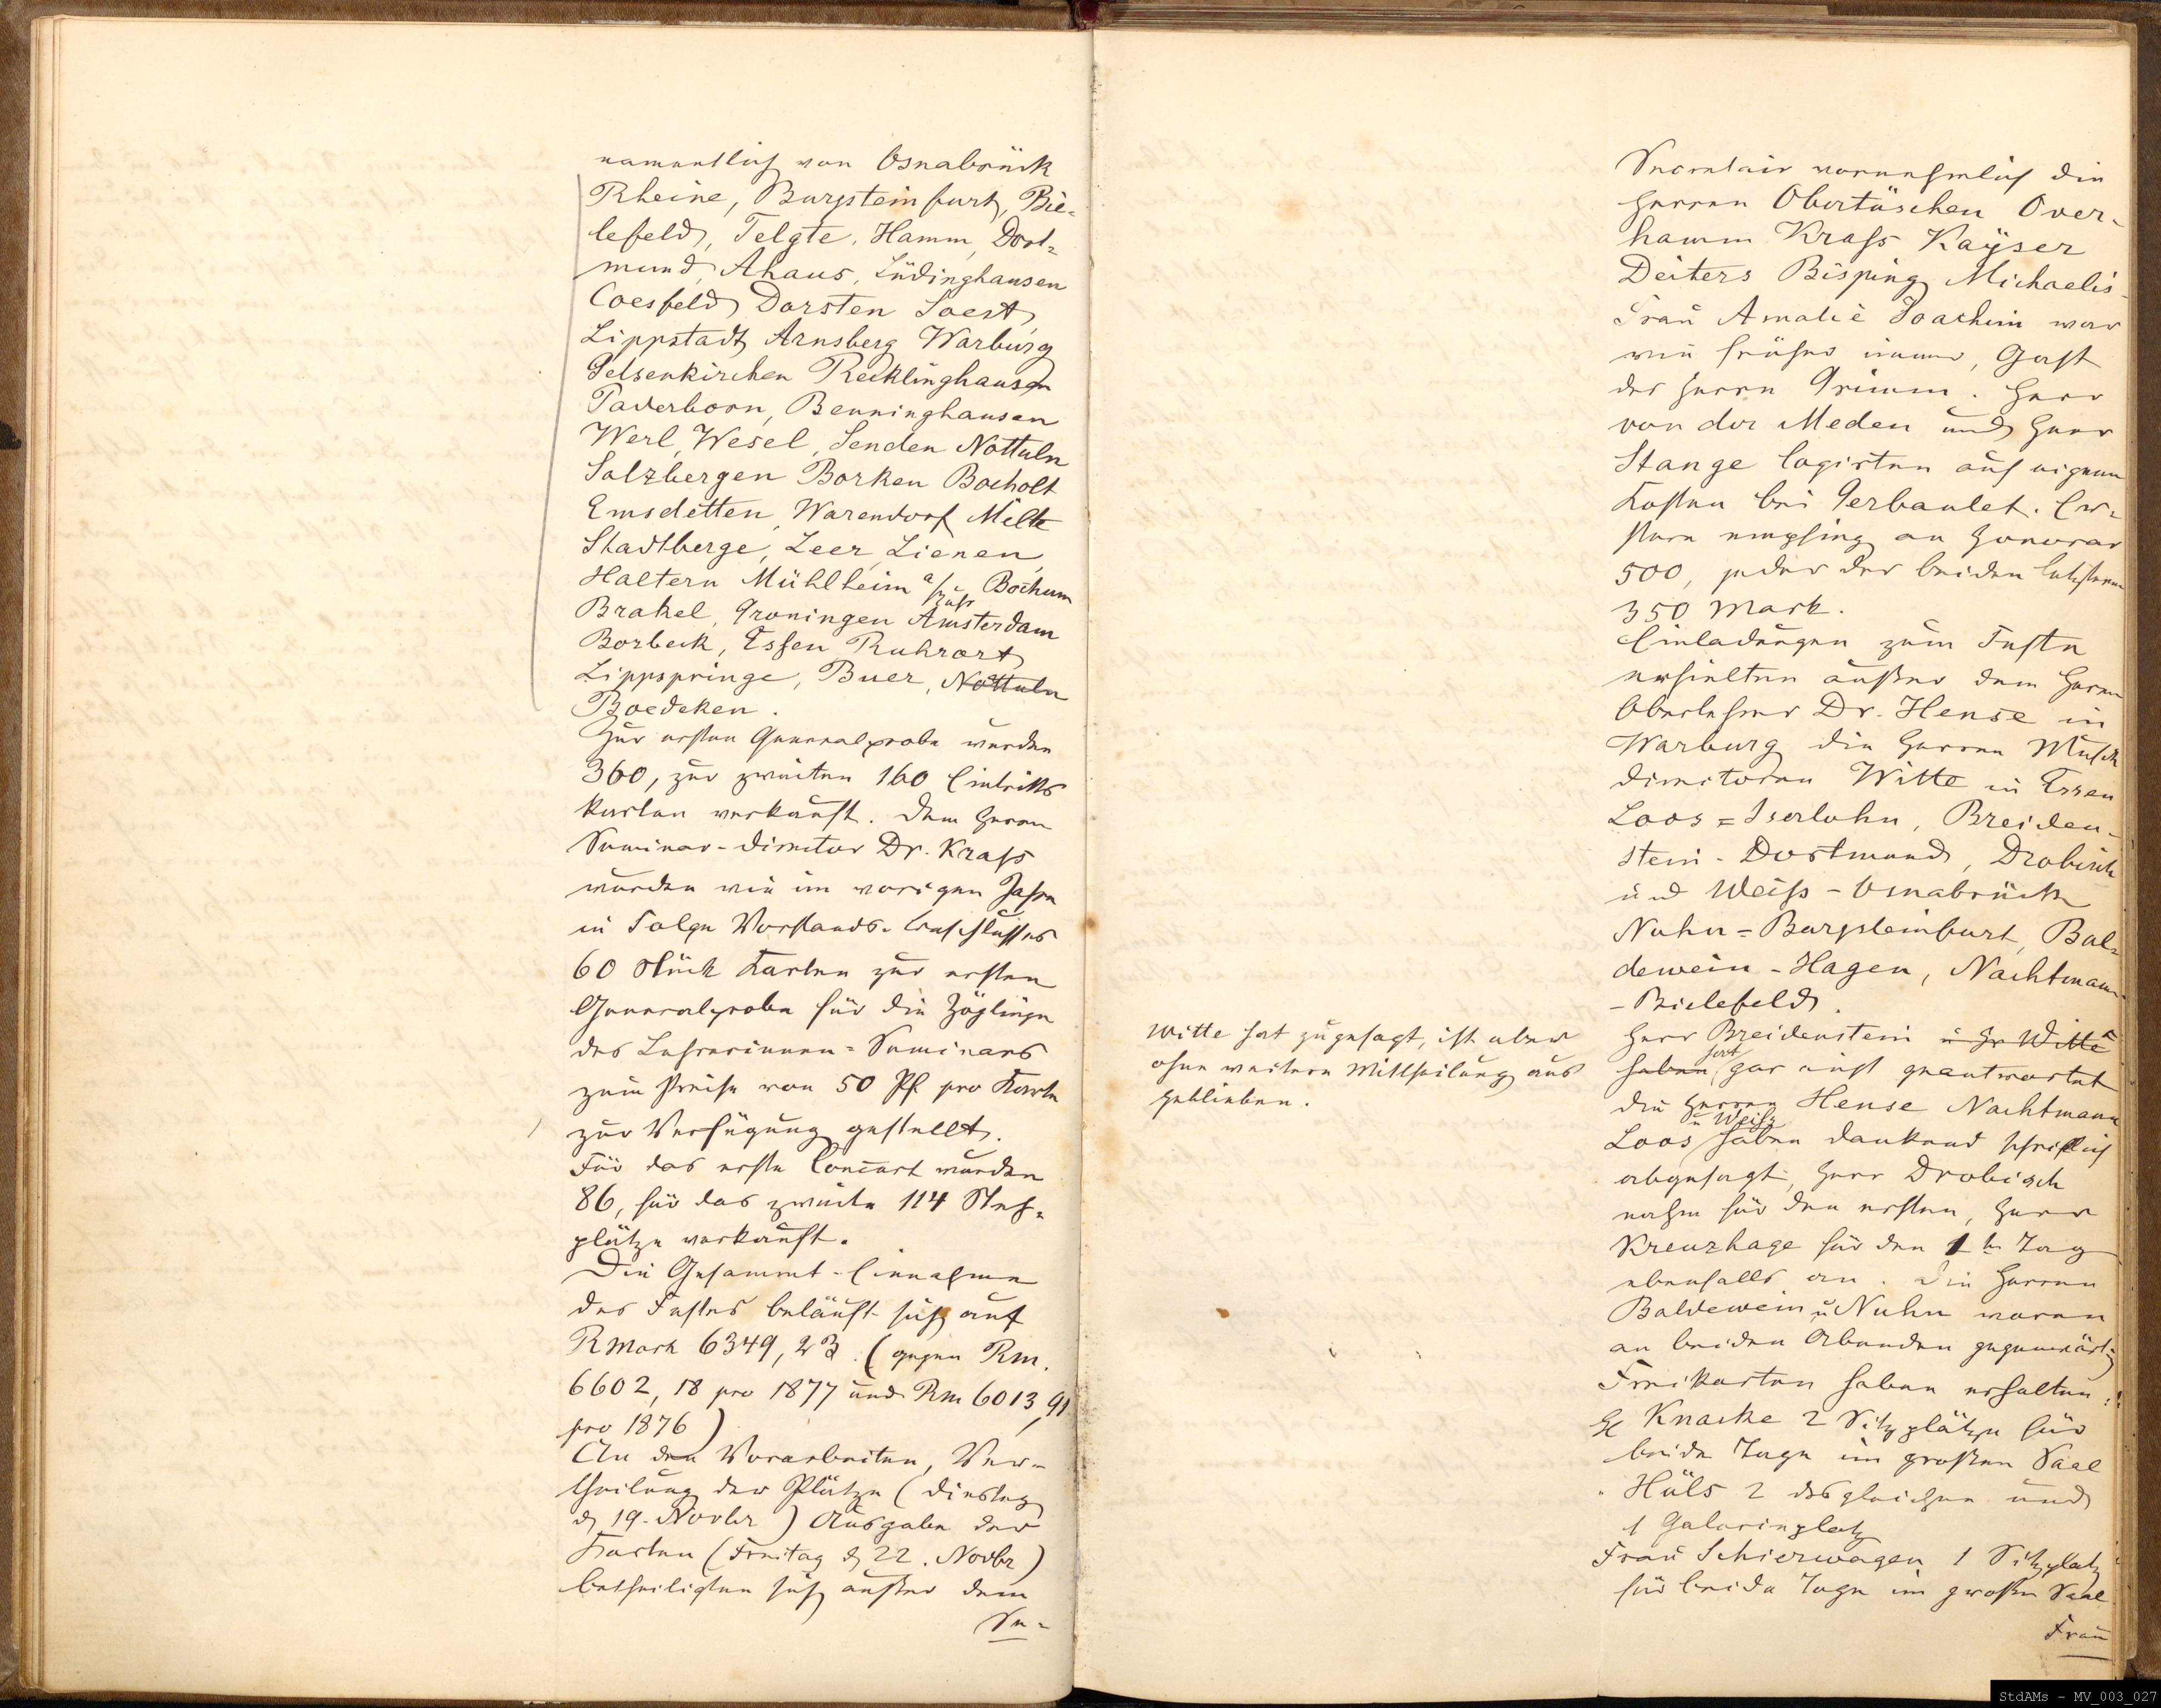 namentlich von Osnabrück
Rheine, Burgsteinfurt, Bie-
lefeld, Telgte, Hamm, Dort-
mund, Ahaus, Lüdinghausen
Coesfeld, Dorsten Soest,
Lippstadt, Arnsberg Warburg
Gelsenkirchen Recklinghausen
Paderborn, Benninghausen
Werl, Wesel, Senden Nottuln
Salzbergen Borken Bocholt
Emsdetten, Warendorf Melle
Stadtberge, Leer, Lienen,
Haltern Mühlheim a/Ruhr Bochum
Brakel, Groningen Amsterdam
Borbeck, Essen Ruhrort,
Lippspringe, Buer, Nottuln
Boedeken.
Zur ersten Generalprobe wurden
360, zur zweiten 160 Eintritts
karten verkauft. Dem Herrn
Seminar-Director Dr. Krass
wurden wie im vorigen Jahre
in Folge Vorstands-Beschlusses
60 Stück Karten zur ersten
Generalprobe für die Zöglinge
des Lehrerinnen-Seminars
zum Preise von 50 Pf pro Karte
zur Verfügung gestellt.
Für das erste Concert wurden
86, für das zweite 114 Steh-
plätze verkauft.
Die Gesammt-Einnahme
des Festes beläuft sich auf
RMark 6349,23. (gegen Rm.
6602,18 pro 1877 und Rm 6013,91
pro 1876)
An den Vorarbeiten, Ver-
theilung der Plätze (Dienstag
d 19. Novbr) Ausgabe der
Karten (Freitag d 22. Novbr)
betheiligten sich außer dem
Se-
Secretair vornehmlich die
Herren Obertüschen Over-
hamm Krass Kayser
Deiters Bisping Michaelis
Frau Amalie Joachim war
wie früher immer, Gast
des Herrn Grimm. Herr
von der Meden und Herr
Stange logirten auf eigene
Kosten bei Gerbaulet. Er-
stere empfing an Honorar
500, jeder der beiden letzteren
350 Mark.
Einladungen zum Feste
erhielten außer dem Herrn
Oberlehrer Dr. Hense in
Warburg die Herren Musik
directoren Witte in Essen
Loos = Iserlohn, Breiden-
stein - Dortmund, Drobisch
und Weiss - Osnabrück
Nuhn = Burgsteinfurt, Bal-
dewein - Hagen, Nachtmann
- Bielefeld.
Witte hat zugesagt, ist aber
ohne weitere Mittheilung aus
geblieben.
Herr Breidenstein u Hr Witte
haben hat gar nicht geantwortet
die Herren Hense Nachtmann
Loos u Weiss haben dankend schriftlich
abgesagt, Herr Drobisch
nahm für den ersten, Herr
Kreuzhage für den 1ten Tag
ebenfalls an. Die Herren
Baldewein u Nuhn waren
an beiden Abenden gegenwärtig
Freikarten haben erhalten:
H Knacke 2 Sitzplätze für
beide Tage im großen Saal
" Hüls 2 desgleichen und
1 Galerieplatz
Frau Schierwagen 1 Sitzplatz
für beide Tage im großen Saal
Frau
StdAMs - MV_003_027